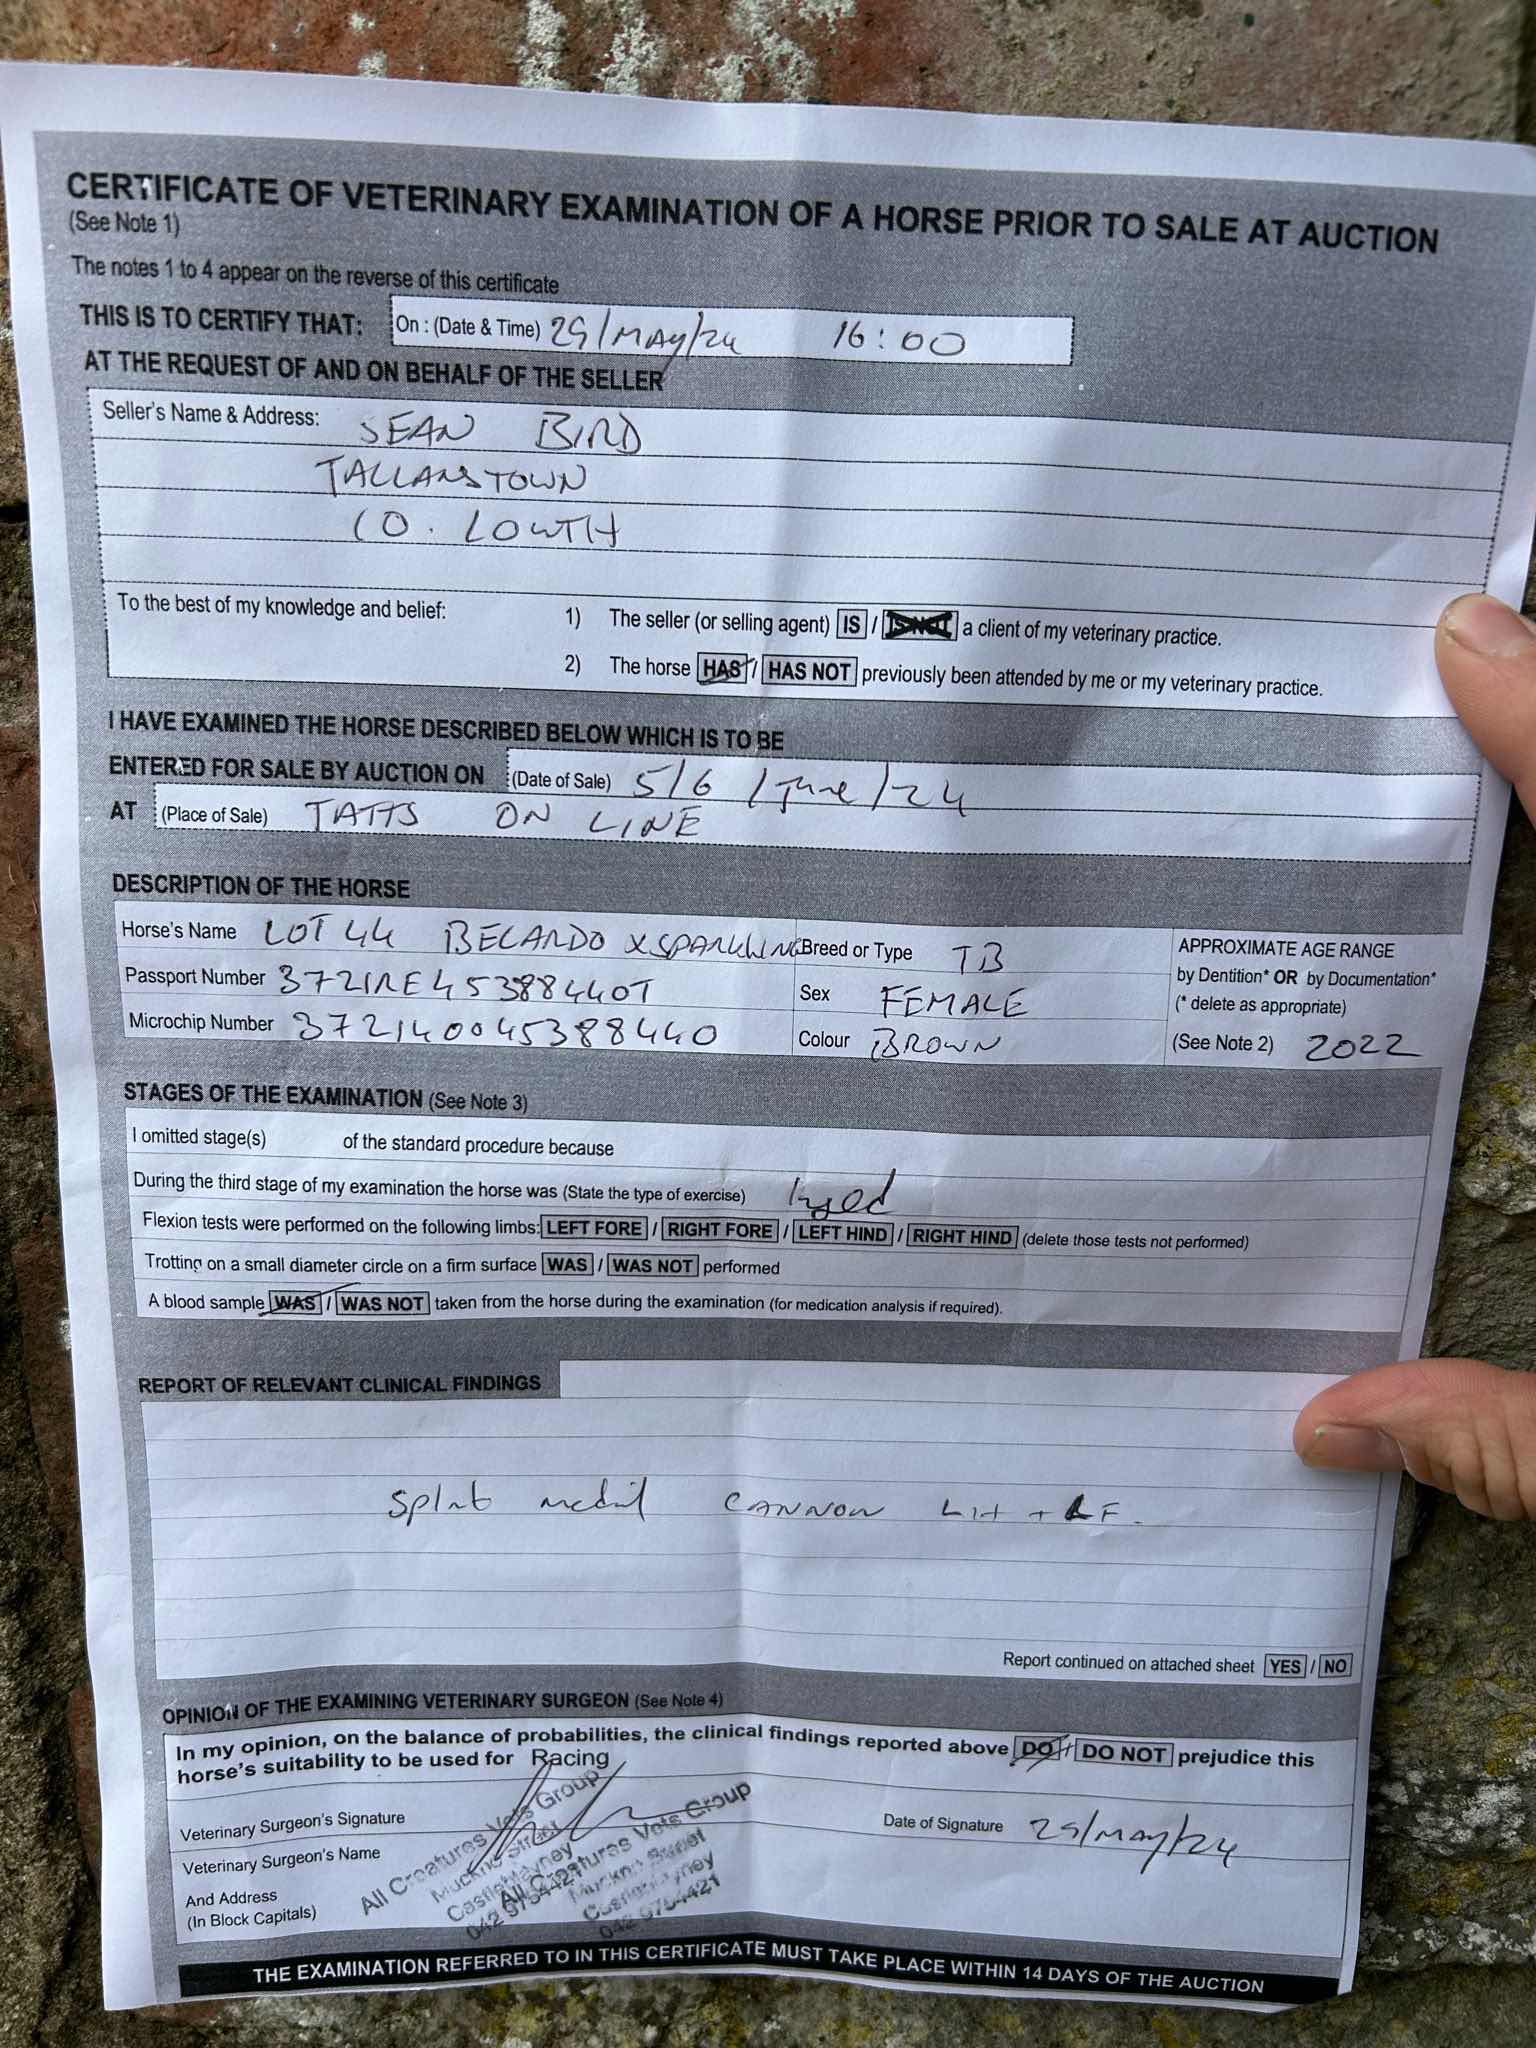 CERTIFICATE OF VETERINARY EXAMINATION OF A HORSE PRIOR TO SALE AT AUCTION
(See Note 1)
The notes 1 to 4 appear on the reverse of this certificate
THIS IS TO CERTIFY THAT: On : (Date & Time) 29/MAY/24 16:00
AT THE REQUEST OF AND ON BEHALF OF THE SELLER
Seller's Name & Address: SEAN BIRD
TALLANSTOWN
CO. LOUTH
To the best of my knowledge and belief: 1) The seller (or selling agent) IS / IS NOT a client of my veterinary practice.
2) The horse HAS / HAS NOT previously been attended by me or my veterinary practice.
I HAVE EXAMINED THE HORSE DESCRIBED BELOW WHICH IS TO BE
ENTERED FOR SALE BY AUCTION ON (Date of Sale) 5/6 /June/24
AT (Place of Sale) TATTS ON LINE
DESCRIPTION OF THE HORSE
Horse's Name LOT 44 BELARDO x SPARKLING Breed or Type TB APPROXIMATE AGE RANGE
by Dentition* OR by Documentation*
Passport Number 372IRE45388440T Sex FEMALE (* delete as appropriate)
Microchip Number 372140045388440 Colour BROWN (See Note 2) 2022
STAGES OF THE EXAMINATION (See Note 3)
I omitted stage(s) of the standard procedure because
During the third stage of my examination the horse was (State the type of exercise)
Flexion tests were performed on the following limbs: LEFT FORE / RIGHT FORE / LEFT HIND / RIGHT HIND (delete those tests not performed)
Trotting on a small diameter circle on a firm surface WAS / WAS NOT performed
A blood sample WAS / WAS NOT taken from the horse during the examination (for medication analysis if required).
REPORT OF RELEVANT CLINICAL FINDINGS
Splint medial CANNON LH + LF.
Report continued on attached sheet YES / NO
OPINION OF THE EXAMINING VETERINARY SURGEON (See Note 4)
In my opinion, on the balance of probabilities, the clinical findings reported above DO / DO NOT prejudice this
horse's suitability to be used for Racing
Veterinary Surgeon's Signature Date of Signature 29/MAY/24
Veterinary Surgeon's Name
And Address
(In Block Capitals)
All Creatures Vets Group
Muckno Street
Castleblayney
042 9754421
All Creatures Vets Group
Muckno Street
Castleblayney
042 9754421
THE EXAMINATION REFERRED TO IN THIS CERTIFICATE MUST TAKE PLACE WITHIN 14 DAYS OF THE AUCTION